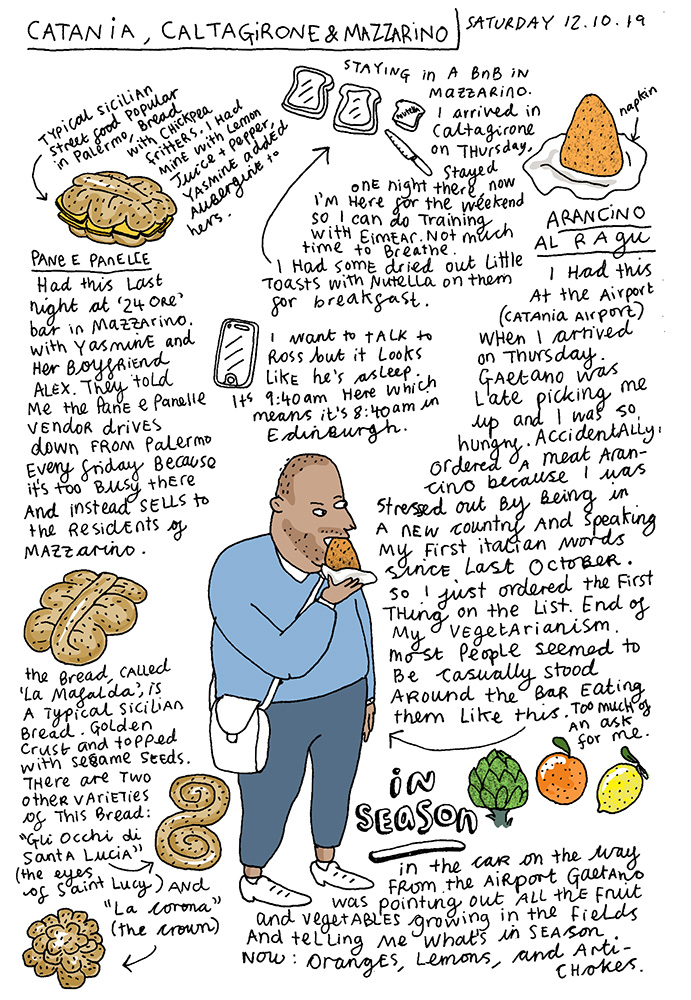 CATANIA, CALTAGIRONE & MAZZARINO
SATURDAY 12.10.19
TYPICAL SICILIAN
street food popular
in Palermo, Bread
with CHICKPEA
FRITTERS. I Had
MINE with LEMON
JUICE + PEPPER,
YASMINE added
AUBERGINE to
hers.
PANE E PANELLE
Had this Last
Night at '24 ORE'
bar in MAZZARINO.
with YASMINE and
Her BOYFRIEND
ALEX. They told
Me the PANE e PANELLE
VENDOR DRIVES
down FROM PALERMO
EVERY friday Because
it's too Busy there
And instead SELLS to
the RESIDENTS of
MAZZARINO.
STAYING in A BnB in
MAZZARINO.
I arrived in
Caltagirone
on Thursday,
Stayed
one night there, now
I'm Here for the weekend
so I can do Training
with EIMEAR. Not much
time to Breathe.
I Had some dried out Little
Toasts with NUTELLA on them
for breakfast.
Nutella
napkin
ARANCINO
AL RAGU
I Had this
At the Airport
(CATANIA AIRPORT)
When I arrived
on Thursday.
GAETANO was
Late picking me
up and I was so
hungry. ACCIDENTALLY
Ordered A Meat Aran-
cino because I was
stressed out By Being in
A new country And Speaking
My First italian words
SINCE LAST OCTOBER.
So I just ordered the First
THING on the LIST. End of
My VEGETARIANISM.
Most People seemed to
Be Casually Stood
AROUND the BAR Eating
them Like this. Too much of
an ask
for me.
I want to TALK to
Ross but it Looks
LIKE he's asleep.
It's 9:40am Here which
means it's 8:40am in
Edinburgh.
the BREAD, CALLED
'La Mafalda', is
A TYPICAL SICILIAN
Bread. Golden
Crust and topped
with sesame SEEDS.
THERE are TWO
other VARIETIES
of This Bread:
"Gli Occhi di
Santa Lucia"
(the eyes
of Saint Lucy) AND
"La Corona"
(the crown)
IN
SEASON
in the CAR on the way
FROM the AIRPORT Gaetano
was pointing out All the Fruit
and vegetABLES growing in the fields
And telling me WHAT'S in SEASON
NOW: ORANGES, LEMONS, and Arti-
CHOKES.